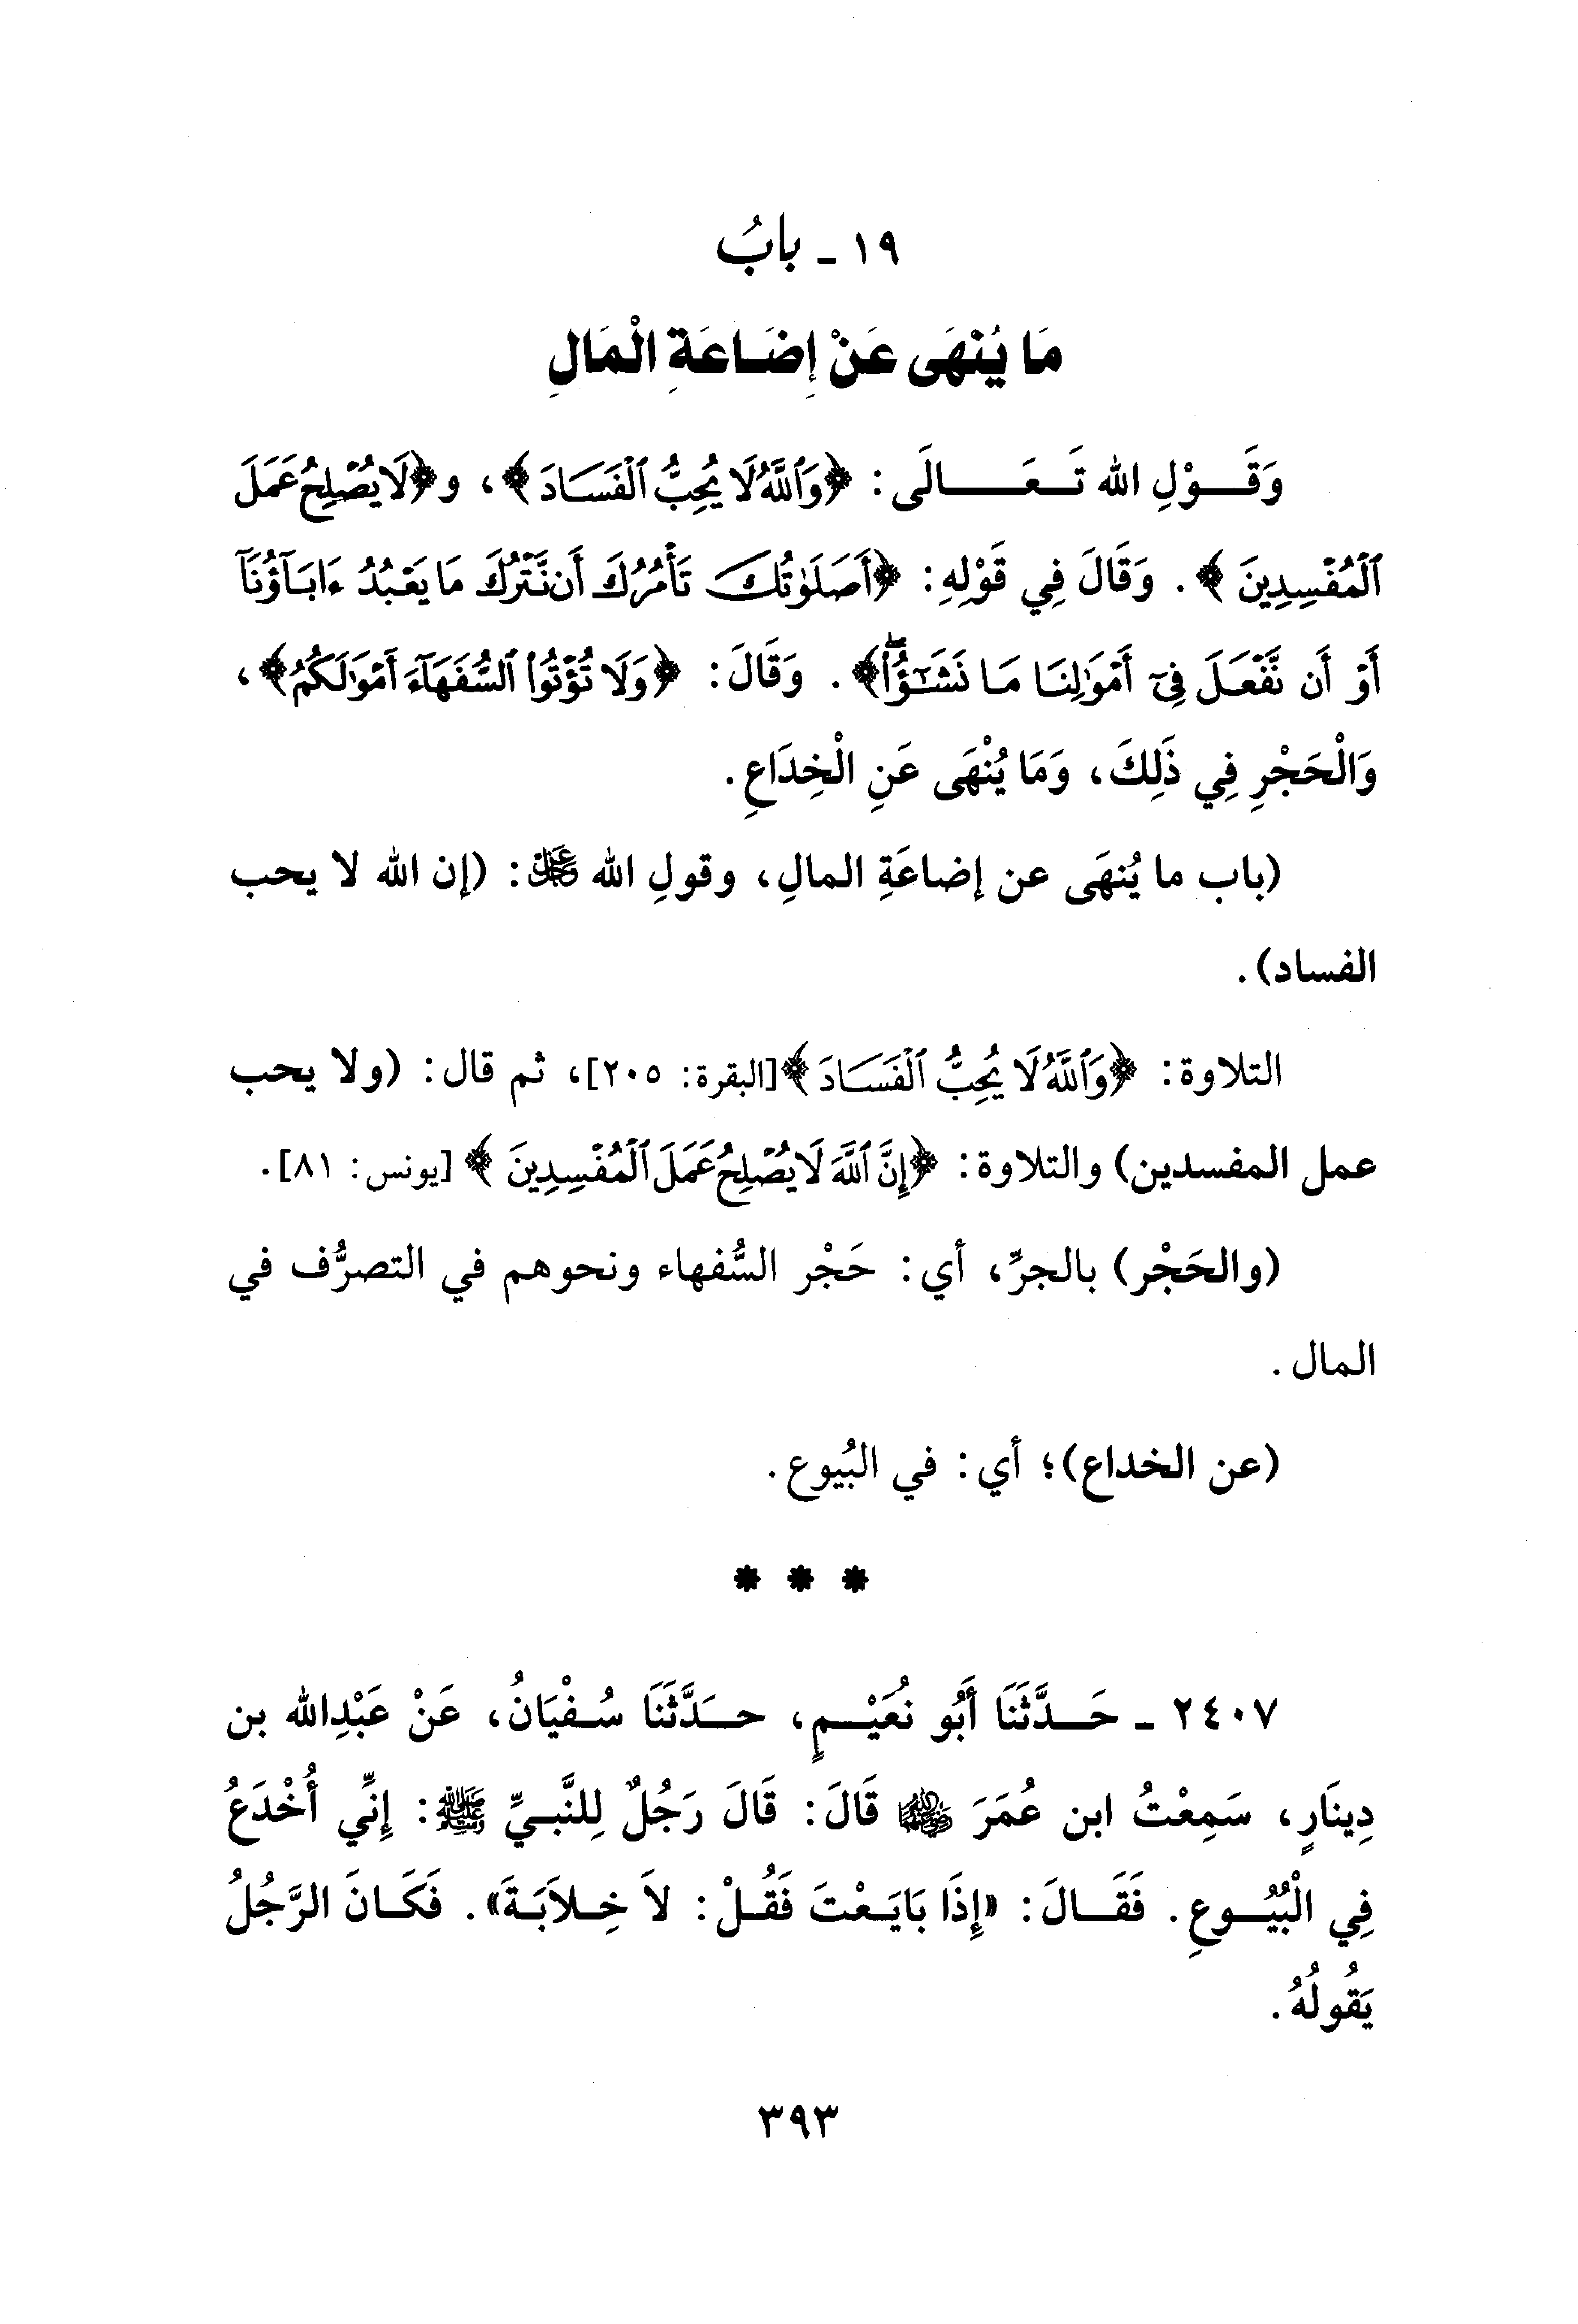 ١٩ - بابُ
مَا يُنْهَى عَنْ إِضَاعَةِ الْمَالِ
وَقَوْلِ الله تَعَالَى: ﴿وَٱللَّهُ لَا يُحِبُّ ٱلْفَسَادَ﴾، و﴿لَا يُصْلِحُ عَمَلَ
ٱلْمُفْسِدِينَ﴾. وَقَالَ فِي قَوْلِهِ: ﴿أَصَلَوٰتُكَ تَأْمُرُكَ أَن نَّتْرُكَ مَا يَعْبُدُ ءَابَآؤُنَآ
أَوْ أَن نَّفْعَلَ فِىٓ أَمْوَٰلِنَا مَا نَشَٰٓؤُا۟ۖ﴾. وَقَالَ: ﴿وَلَا تُؤْتُوا۟ ٱلسُّفَهَآءَ أَمْوَٰلَكُمُ﴾،
وَالْحَجْرِ فِي ذَلِكَ، وَمَا يُنْهَى عَنِ الْخِدَاعِ.
(باب ما يُنهَى عن إضاعَةِ المالِ، وقولِ الله عَزَّ وَجَلَّ: (إن الله لا يحب
الفساد).
التلاوة: ﴿وَٱللَّهُ لَا يُحِبُّ ٱلْفَسَادَ﴾[البقرة: ٢٠٥]، ثم قال: (ولا يحب
عمل المفسدين) والتلاوة: ﴿إِنَّ ٱللَّهَ لَا يُصْلِحُ عَمَلَ ٱلْمُفْسِدِينَ﴾ [يونس: ٨١].
(والحَجْر) بالجرِّ، أي: حَجْر السُّفهاء ونحوهم في التصرُّف في
المال.
(عن الخداع)؛ أي: في البُيوع.
* * *
٢٤٠٧ - حَدَّثَنَا أَبُو نُعَيْمٍ، حدَّثَنَا سُفْيَانُ، عَنْ عَبْدِالله بن
دِينَارٍ، سَمِعْتُ ابن عُمَرَ رضي الله عنهما قَالَ: قَالَ رَجُلٌ لِلنَّبيِّ ﷺ: إِنِّي أُخْدَعُ
فِي الْبُيُوعِ. فَقَالَ: «إِذَا بَايَعْتَ فَقُلْ: لاَ خِلاَبَةَ». فَكَانَ الرَّجُلُ
يَقُولُهُ.
٣٩٣